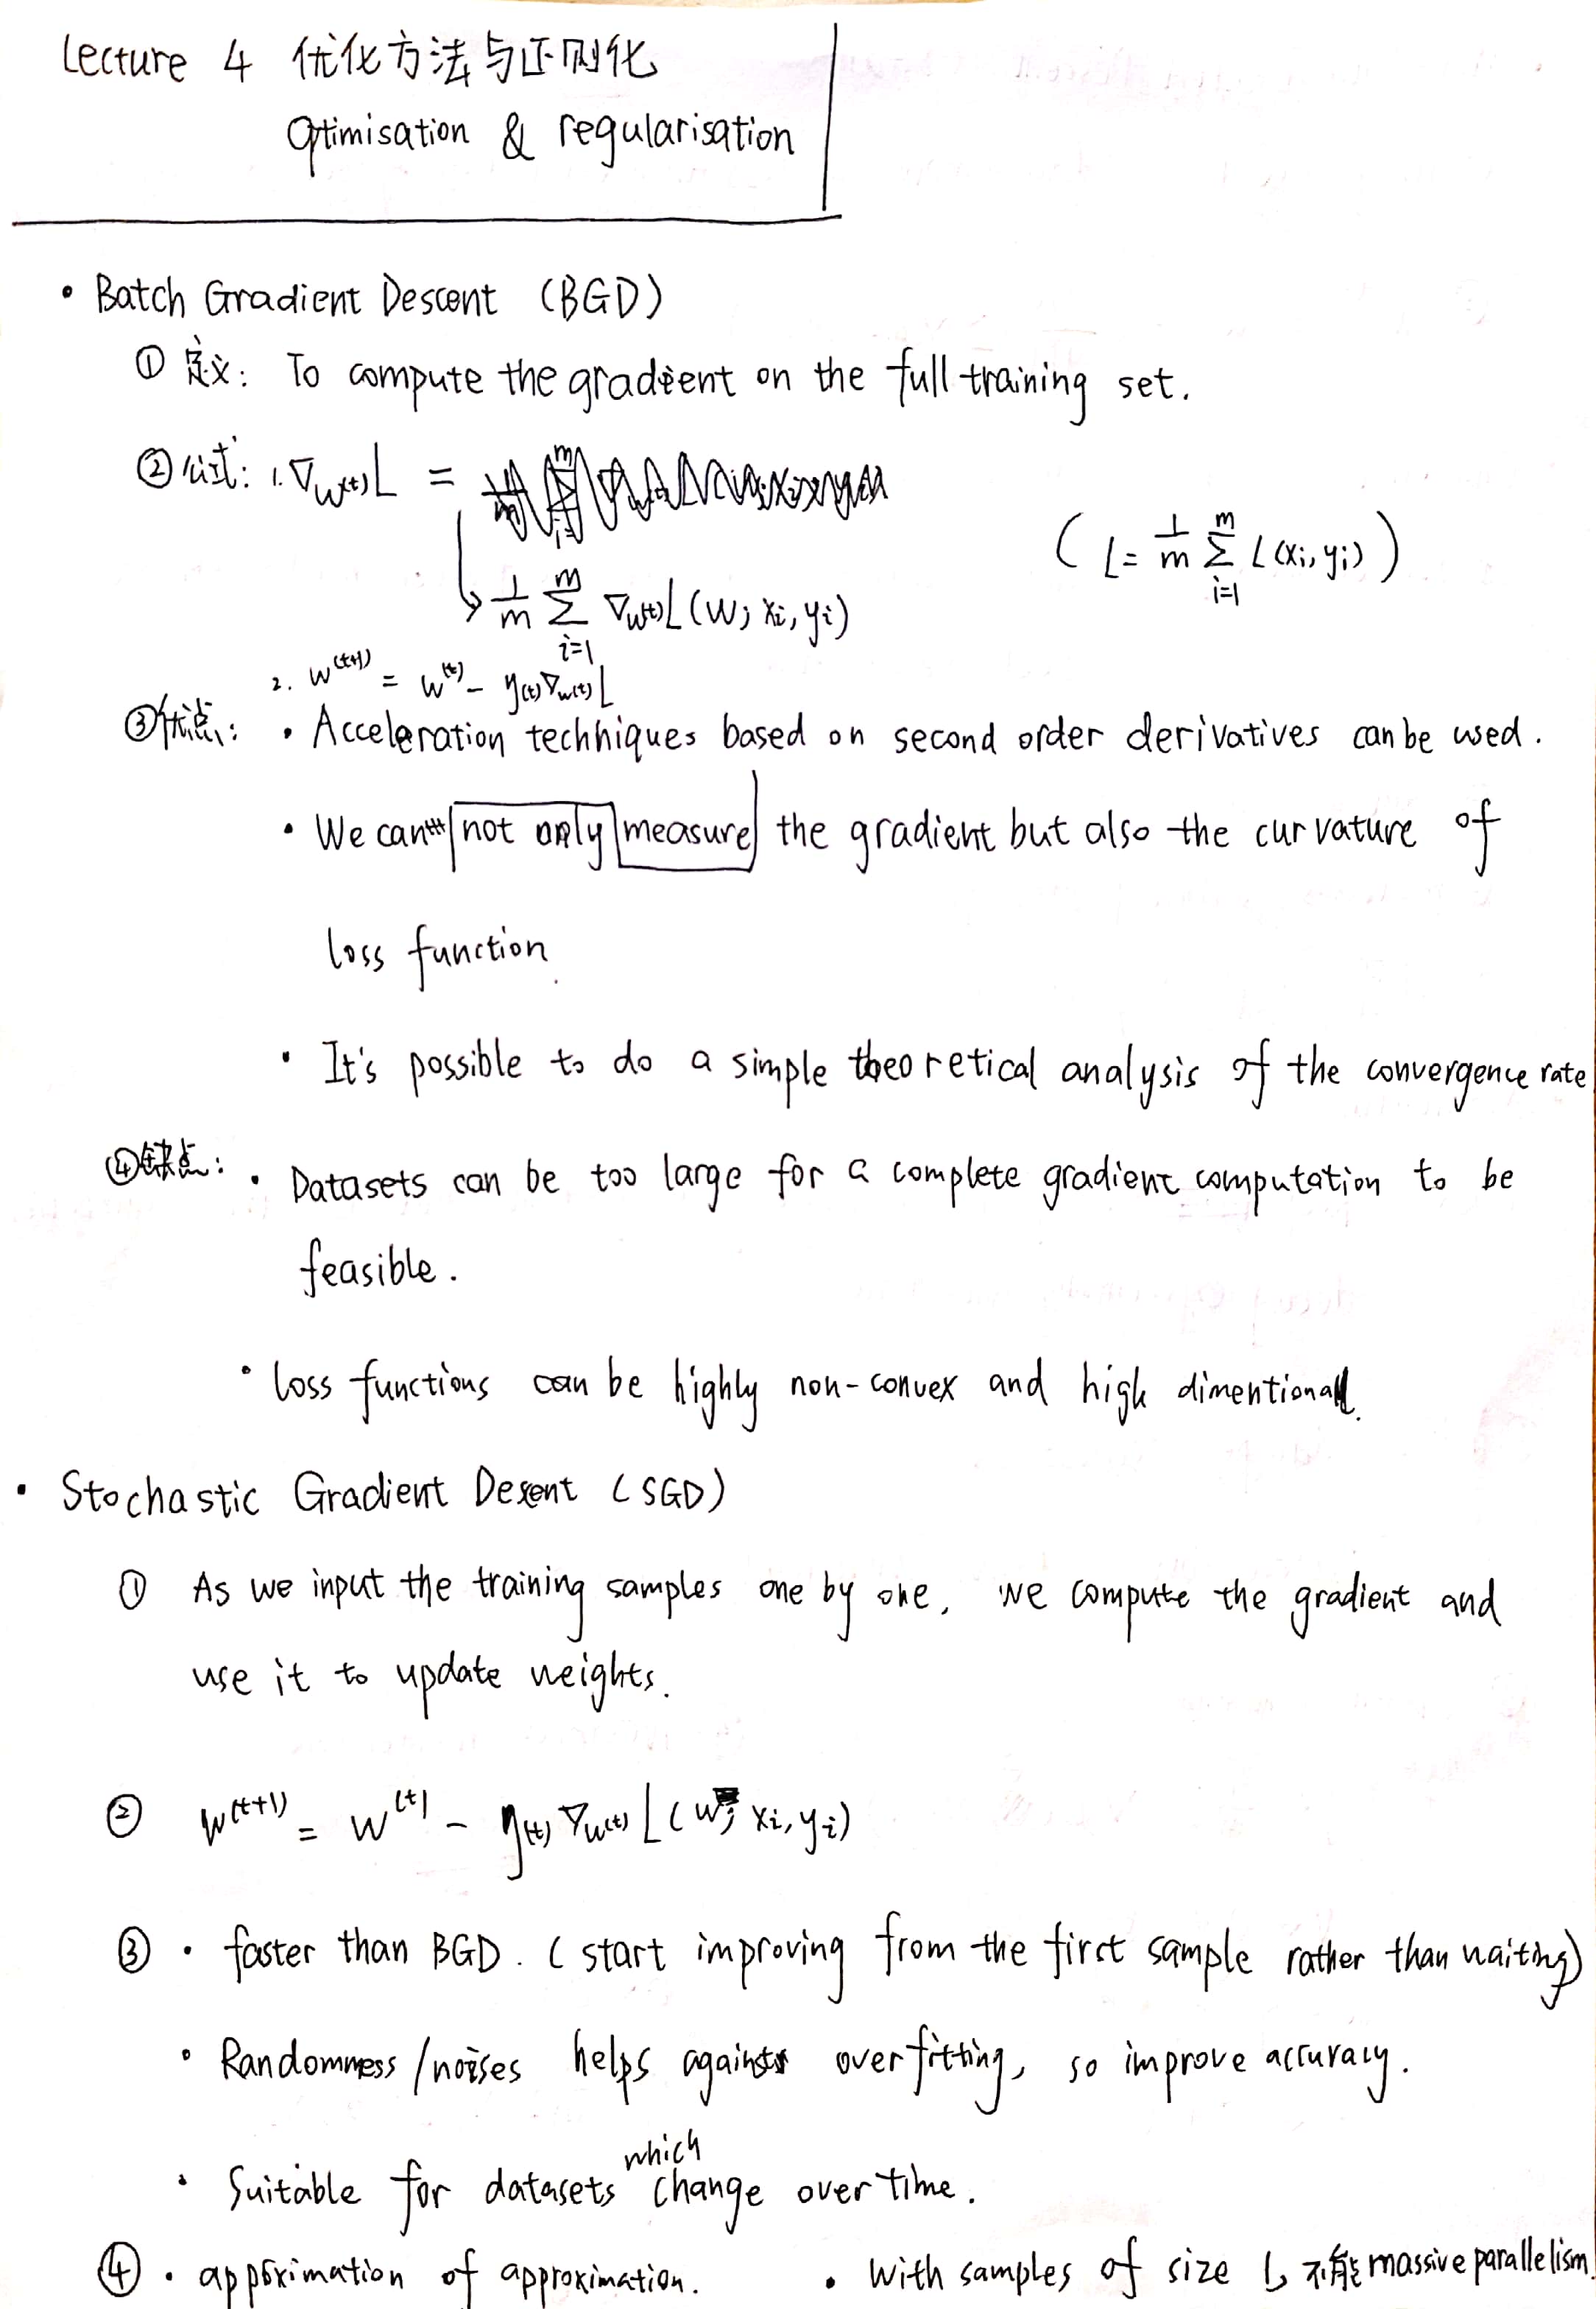 Lecture 4 优化方法与正则化
Optimisation & regularisation
• Batch Gradient Descent (BGD)
① 定义: To compute the gradient on the full training set.
② 公式: 1. ∇w(t) L =
(L = 1/m Σ_{i=1}^{m} L(xi, yi))
↳ 1/m Σ_{i=1}^{m} ∇w(t) L(w; xi, yi)
2. w^(t+1) = w^(t) - η(t) ∇w(t) L
③ 优点: • Acceleration techniques based on second order derivatives can be used.
• We can not only measure the gradient but also the curvature of
loss function.
• It's possible to do a simple theoretical analysis of the convergence rate
④ 缺点: • Datasets can be too large for a complete gradient computation to be
feasible.
• loss functions can be highly non-convex and high dimentional.
• Stochastic Gradient Desent (SGD)
① As we input the training samples one by one, we compute the gradient and
use it to update weights.
② w^(t+1) = w^(t) - η(t) ∇w(t) L(w; xi, yi)
③ • faster than BGD. (start improving from the first sample rather than waiting)
• Randomness/noises helps against overfitting, so improve accuracy.
• Suitable for datasets which change over time.
④ • approximation of approximation. • With samples of size 1, 不能 massive parallelism.